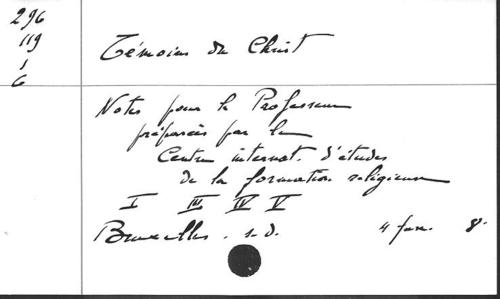 296
119
1
6
Témoins du Christ
Notes pour le Professeur
préparées par le
Centre internat. d'études
de la formation religieuse
I III IV V
Bruxelles. s.d. 4 fasc. 8°